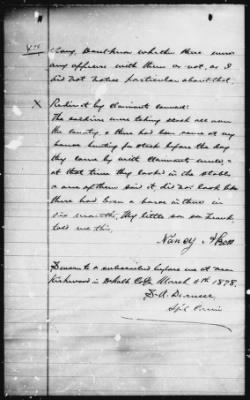 Ans
Army. Don't know whether there were
any officers with them or not, as I
did not notice particular about that.
X Redirect by Claimants Counsel:
The soldiers were taking stock all over
the country, & there had been some at my
house hunting for stock before the day
they came by with Claimants mules, &
at that time they looked in the stable
& one of them said it did not look like
there had been a horse in there in
six months. My little son Frank
told me this.
Nancy A Bell
Sworn to & subscribed before me at near
Kirkwood in DeKalb Co Ga March 6th 1878.